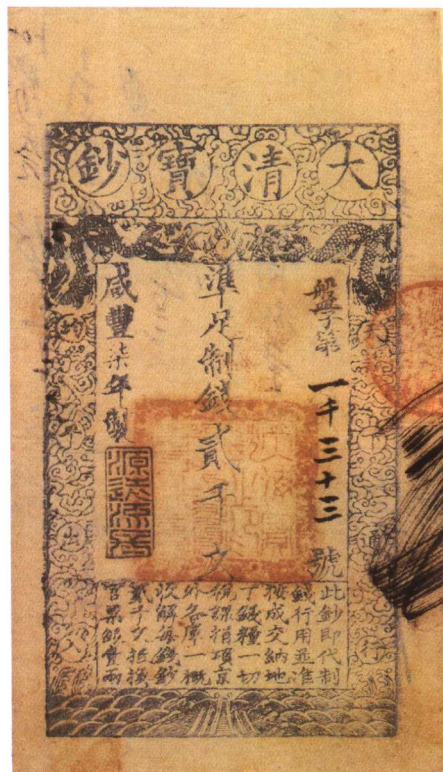 大清寶鈔
盤字第一千三十三號
準足制錢貳千文
咸豐柒年製
源遠流長
天下通行
均平出入
此鈔即代制
錢行用並准
按成交納地
丁錢糧一切
稅課捐項京
外各庫一概
收解每錢鈔
貳千文抵換
官票銀壹兩